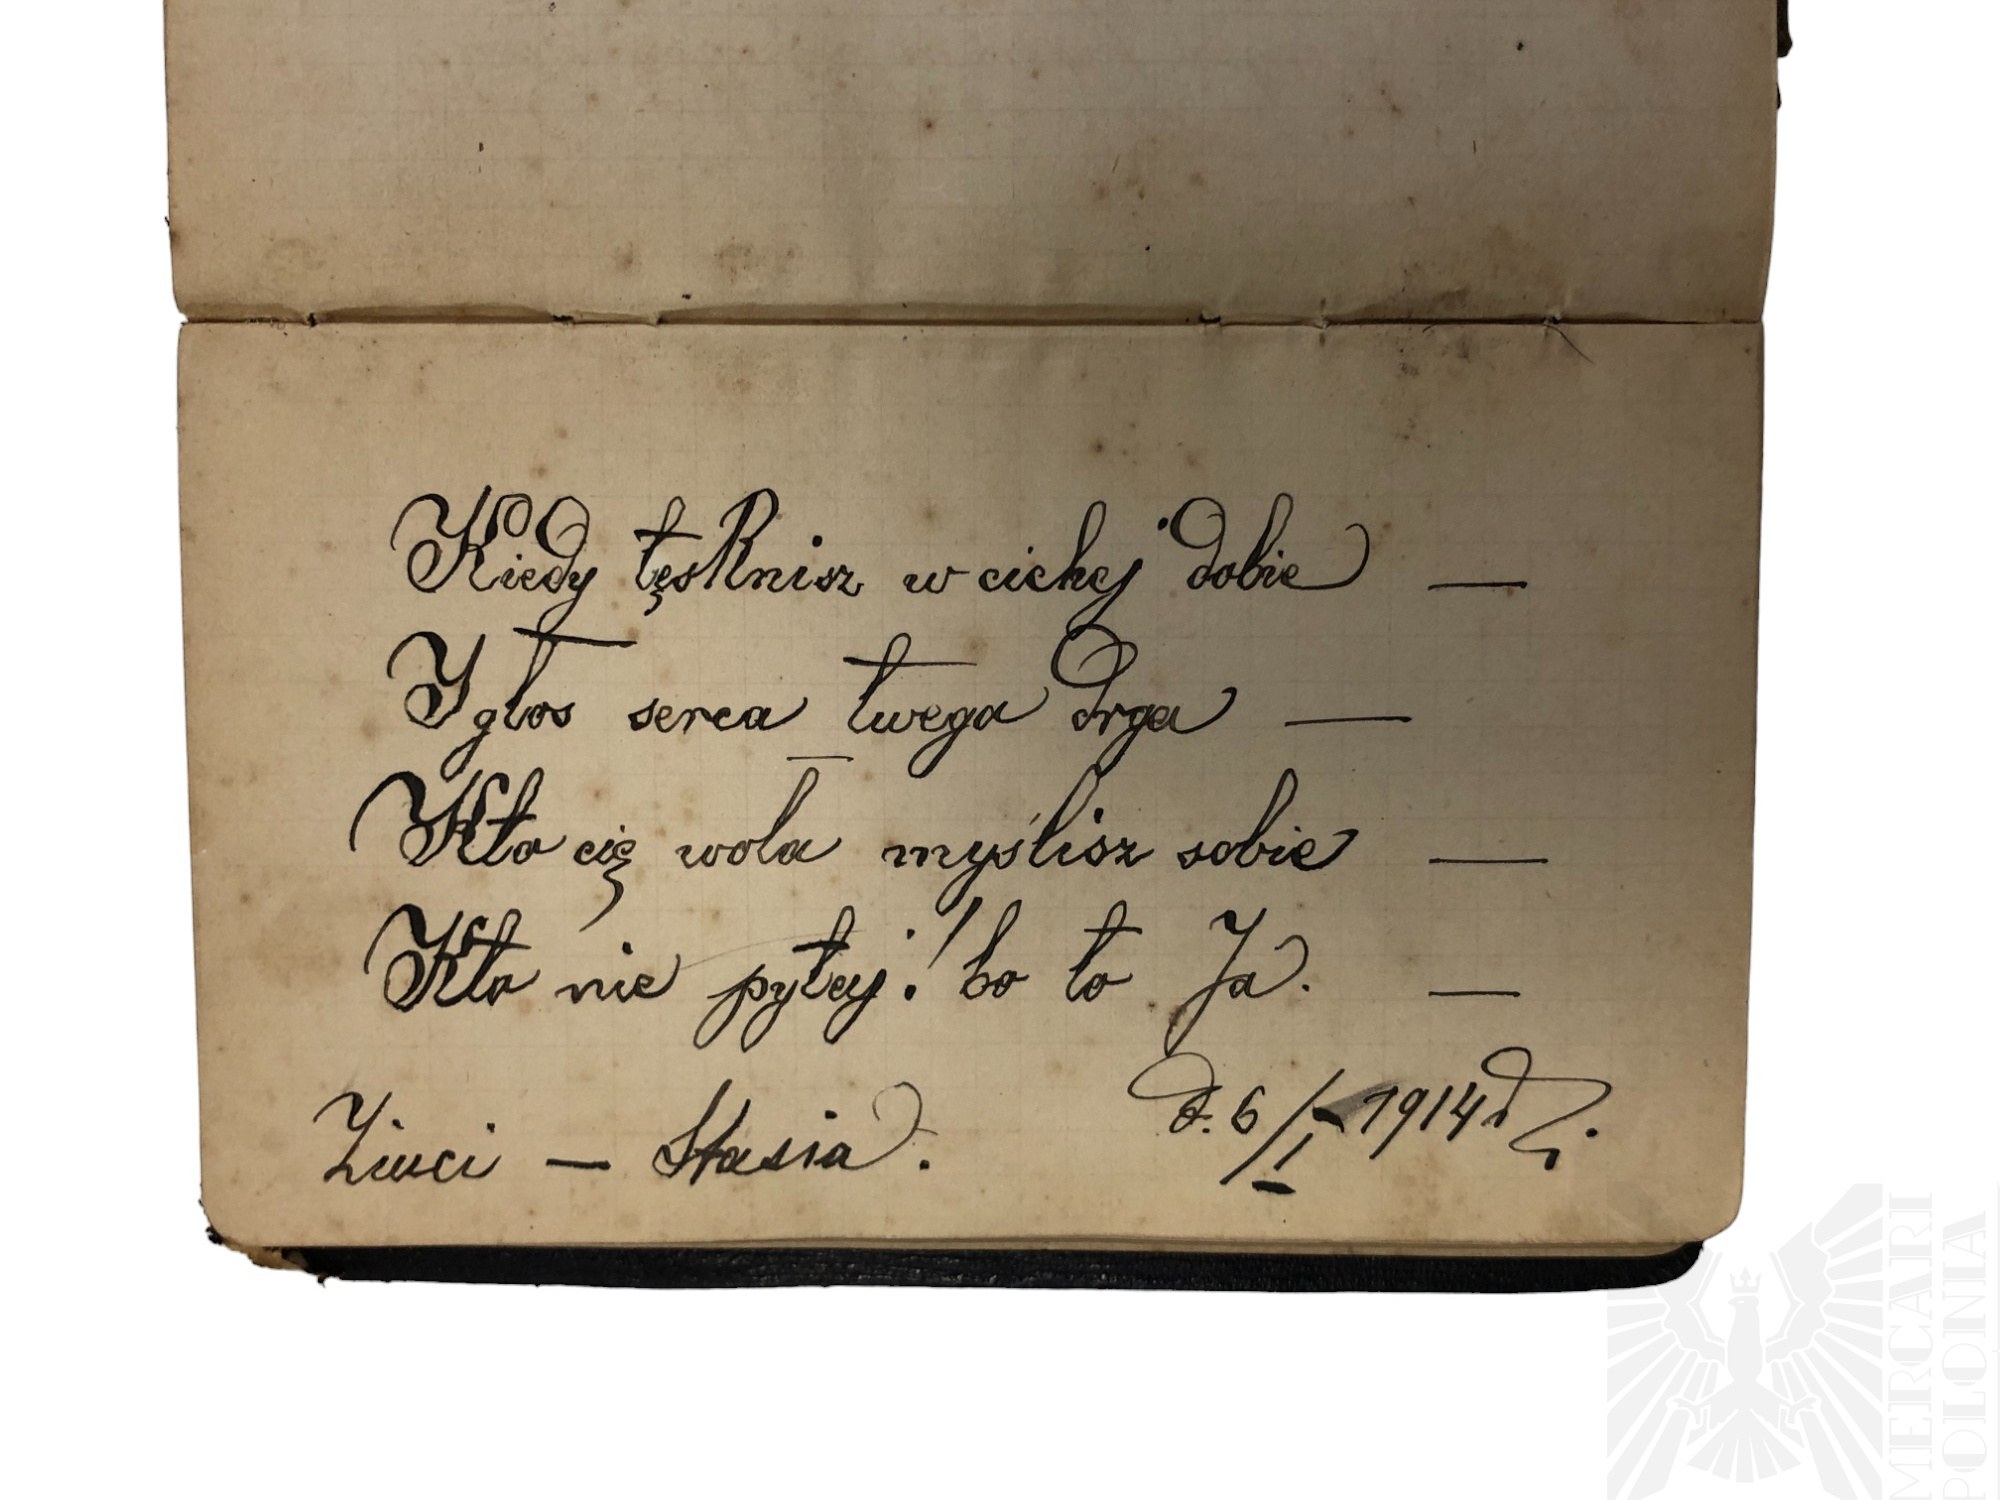 Kiedy tęsknisz w cichej dobie —
I głos serca twega drga —
Kto cię woła myślisz sobie —
Kto nie pytaj! bo to Ja. —
Ziuci — Stasia. d. 6/I 1914 r.
MERCARI
POLONIA